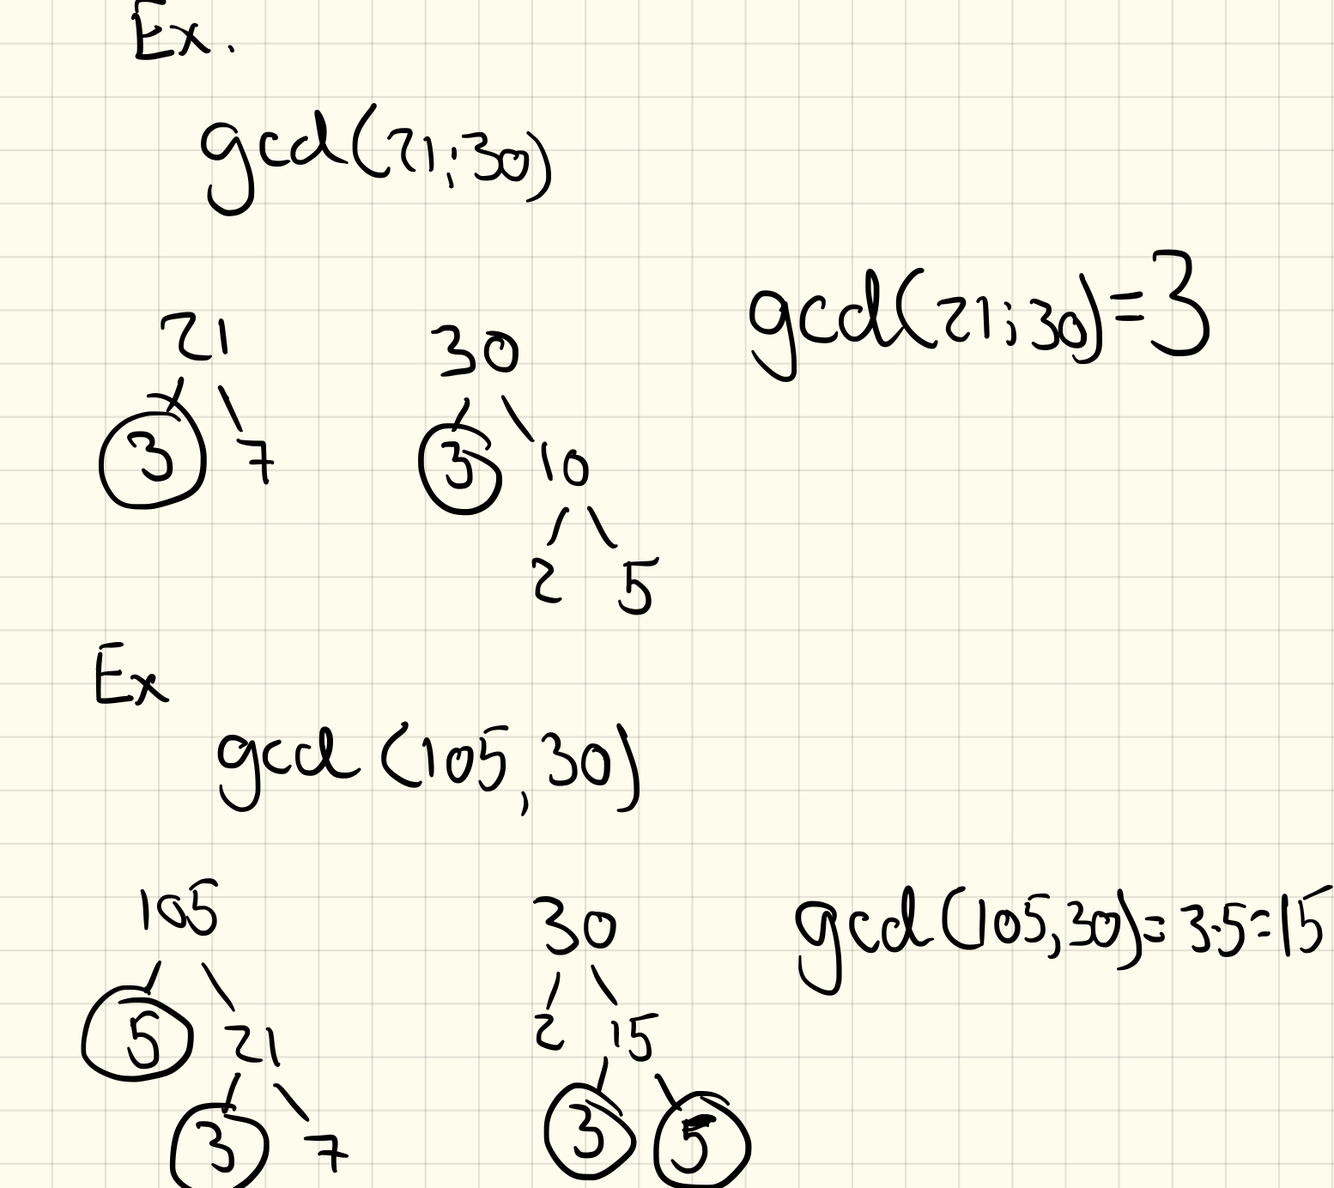 Ex.
gcd(21;30)
gcd(21;30)=3
21 30
3 7 3 10
2 5
Ex
gcd (105,30)
105 30 gcd(105,30)=3·5=15
5 21 2 15
3 7 3 5